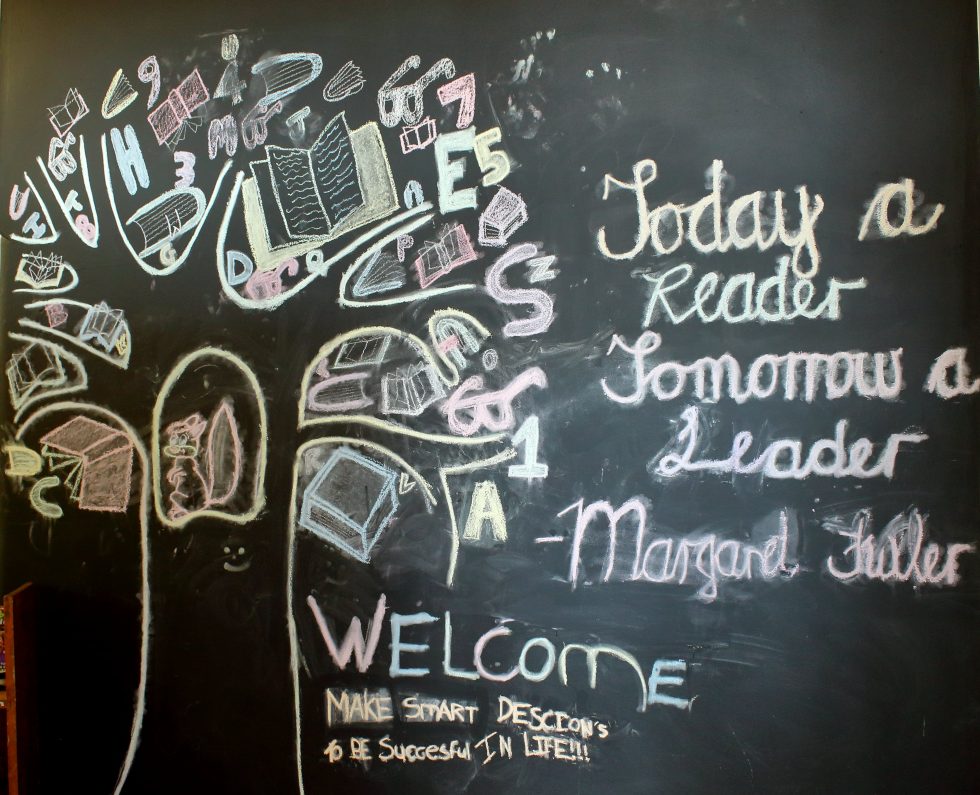 9
4
7
H
M
T
3
E
5
U
D
Q
P
S
N
G
B
C
1
A
Today a
Reader
Tomorrow a
Leader
- Margaret Fuller
WELCOME
MAKE SMART DESCION's
to BE Succesful IN LIFE!!!